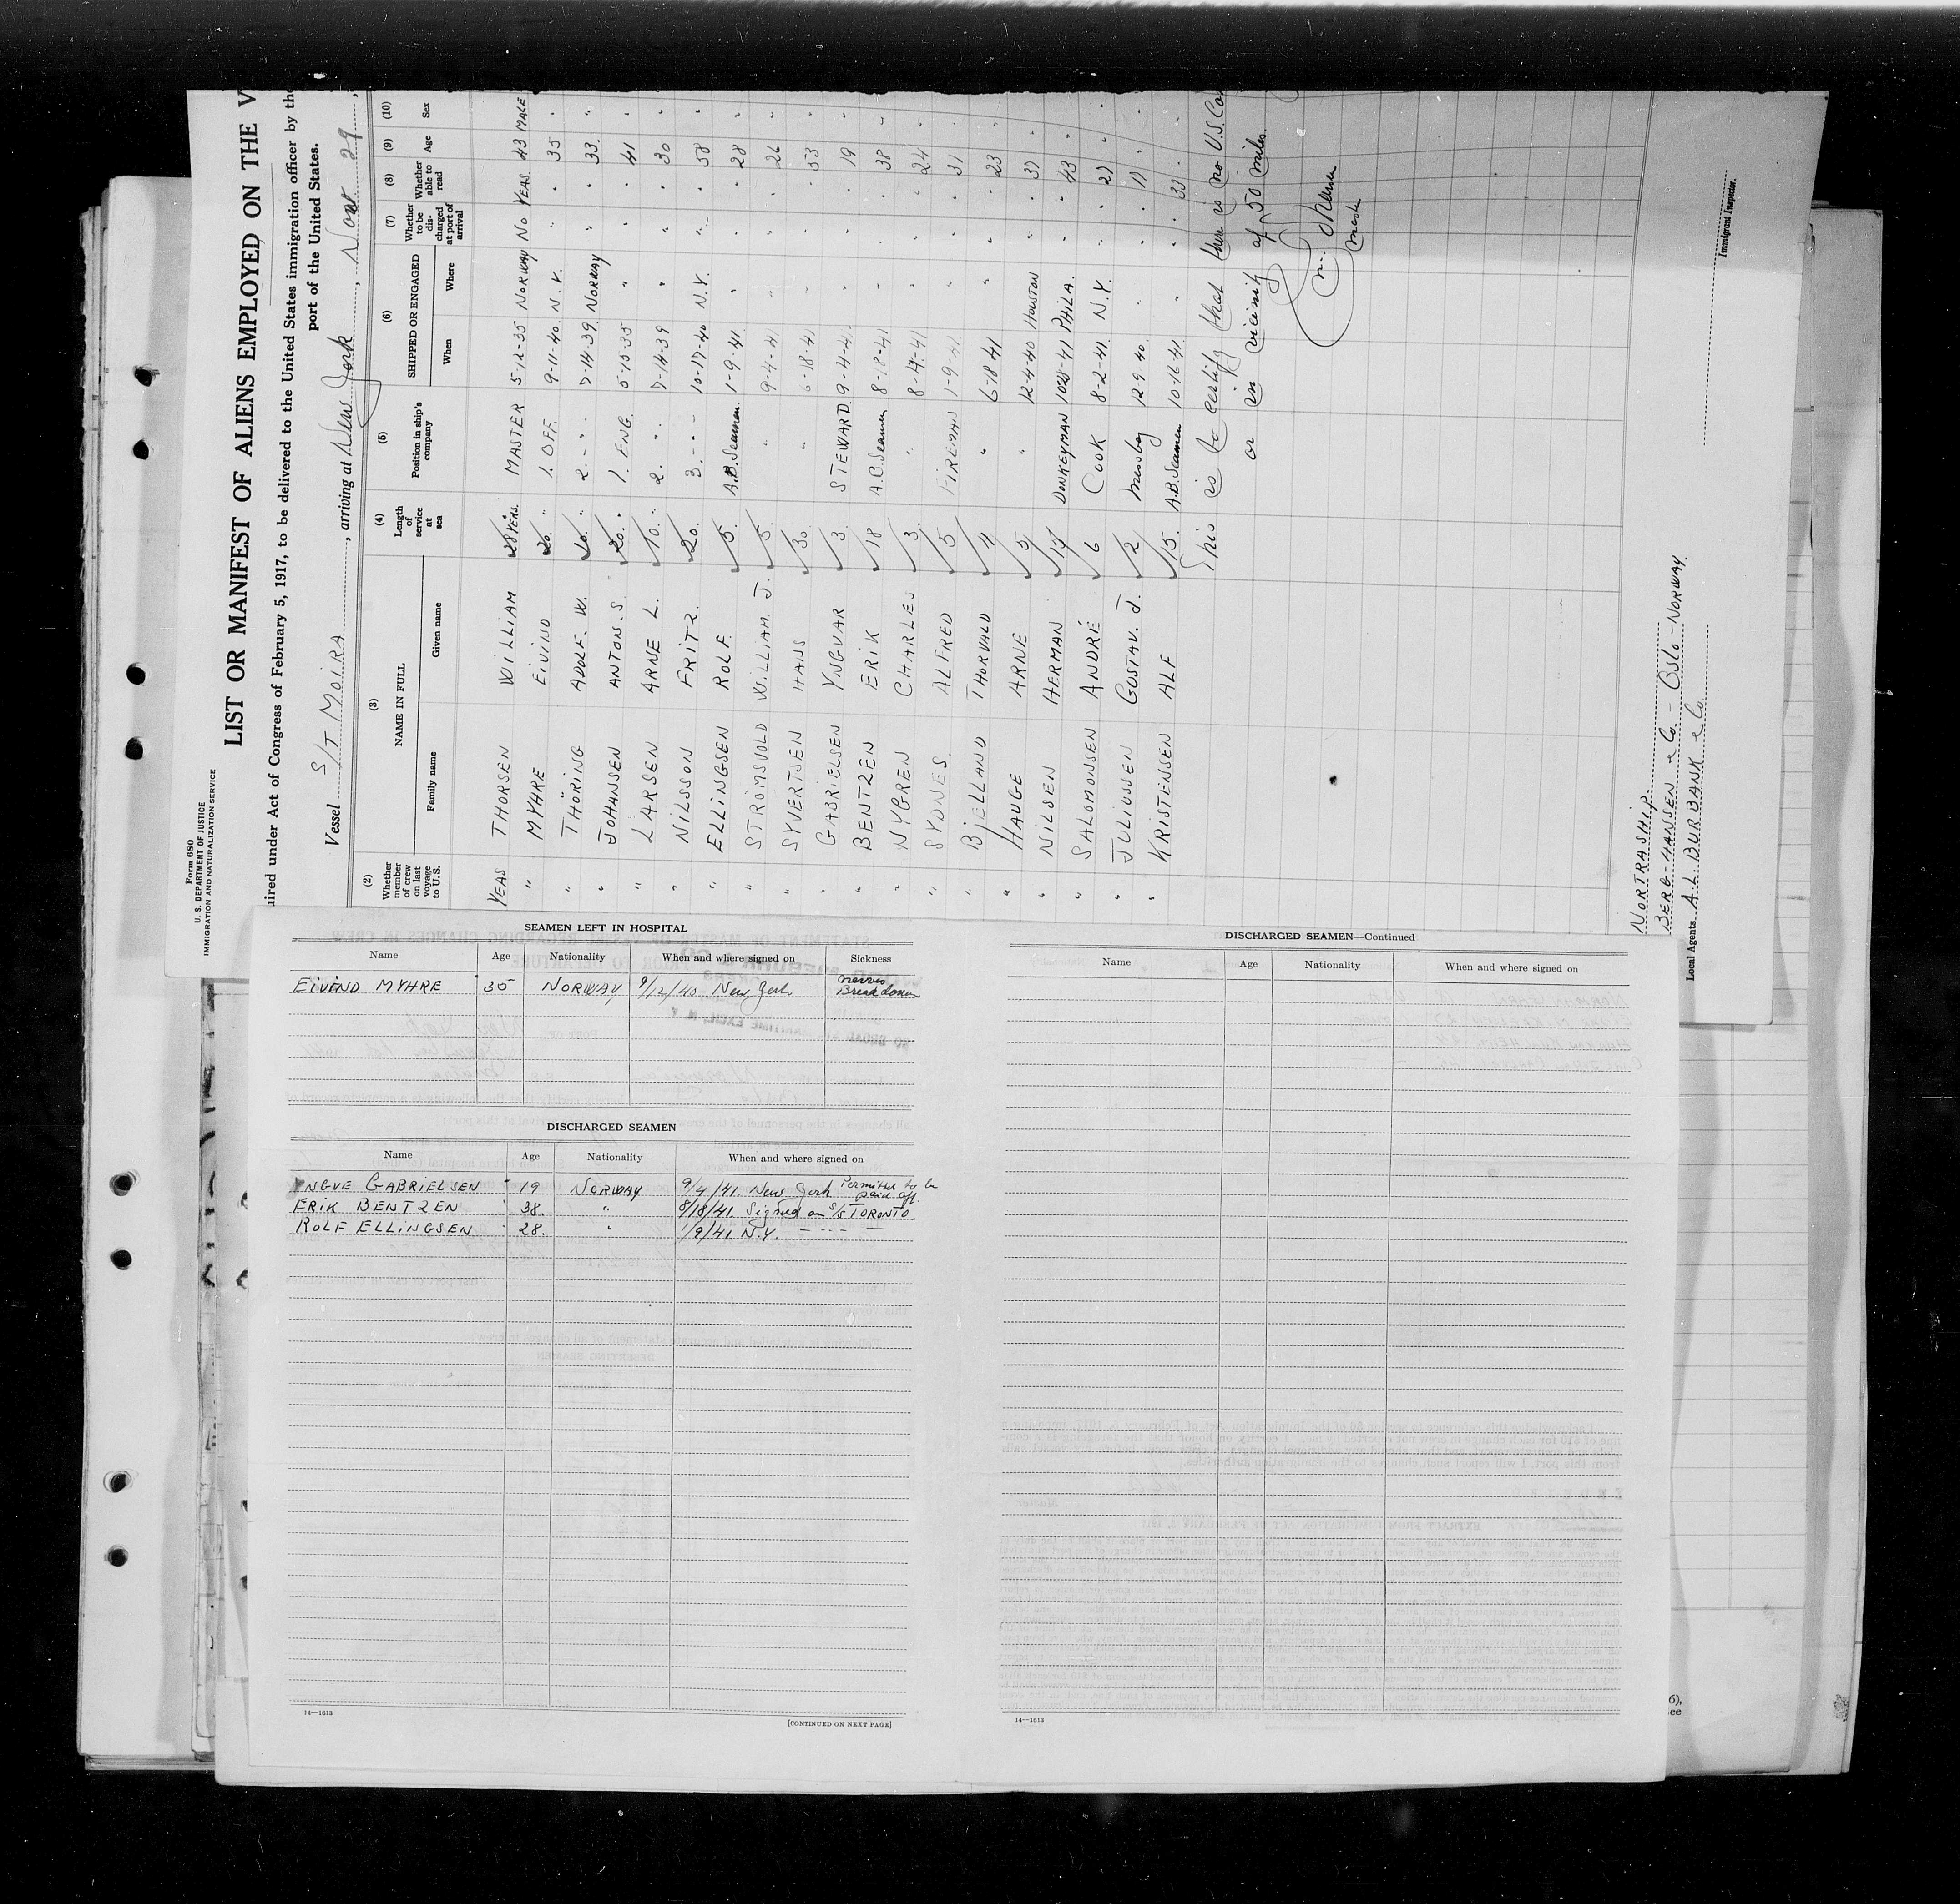 Form 680
U. S. DEPARTMENT OF JUSTICE
IMMIGRATION AND NATURALIZATION SERVICE
LIST OR MANIFEST OF ALIENS EMPLOYED ON THE V
uired under Act of Congress of February 5, 1917, to be delivered to the United States immigration officer by the
port of the United States.
Vessel S/T MOIRA, arriving at New York, Nov 29,
(2) (3) (4) (5) (6) (7) (8) (9) (10)
Whether member of crew on last voyage to U.S. NAME IN FULL Family name Given name Length of service at sea Position in ship's company SHIPPED OR ENGAGED When Where Whether to be discharged at port of arrival Whether able to read Age Sex
YEAS THORSEN WILLIAM 28 YERS. MASTER 5-12-35 NORWAY NO YEAS 43 MALE
" MYHRE EIVIND 20 " 1. OFF. 9-11-40 N.Y. " " 35 "
" THÖRING ADOLF. W. 10. " 2. - " - 7-14-39 NORWAY " " 33. "
" JOHANSEN ANTON. S. 20. " 1. ENG. 5-15-35 " " " 41 "
" LARSEN ARNE L. 10. " 2. " 7-14-39 " " " 30 "
" NILSSON FRITZ. 20. 3. - - - 10-17-40 N.Y. " " 58 "
" ELLINGSEN ROLF. 5. A.B. Seaman. 1-9-41 " " " 28 "
" STRÖMSVOLD WILLIAM. J. 5. " 9-4-41 " " " 26 "
" SYVERTSEN HANS 30 " 6-18-41 " " " 53 "
" GABRIELSEN YNGVAR 3 STEWARD. 9-4-41 " " " 19 "
" BENTZEN ERIK 18 A.B. Seamen 8-18-41 " " " 38 "
" NYGREN CHARLES 3. " 8-19-41 " " " 24 "
" SYDNES. ALFRED 5 FIREMAN 1-9-41 " " " 31 "
" BJELLAND THORVALD 4 " 6-18-41 " " " 23 "
" HAUGE ARNE 5 " 12-4-40 HOUSTON " " 37 "
" NILSEN HERMAN 15 DONKEYMAN 10-28-41 PHILA. " " 43 "
" SALOMONSEN ANDRÉ 6 COOK 8-2-41. N.Y. " " 27 "
" JULIUSSEN GUSTAV. J. 2 Messboy 12-9-40 " " " 17 "
" KRISTENSEN ALF 15. A.B. Seamen 10-16-41 " " " 33 "
This is to certify that there is no U.S. Con
or in vicinity of 50 miles.
Master
NORTRASHIP.
BERG-HANSEN & Co. - OSLO - NORWAY.
Local Agents A.L. BURBANK & Co
Immigrant Inspector.
SEAMEN LEFT IN HOSPITAL
Name Age Nationality When and where signed on Sickness
EIVIND MYHRE 35 NORWAY 9/12/40 New York Nerves Breakdown
DISCHARGED SEAMEN
Name Age Nationality When and where signed on
YNGVE GABRIELSEN 19 NORWAY 9/4/41. New York Permitted to be paid off.
ERIK BENTZEN 38. " 8/18/41. Signed on S/S TORONTO
ROLF ELLINGSEN 28. " 1/9/41 N.Y. — - - - —
14—1613
[CONTINUED ON NEXT PAGE]
DISCHARGED SEAMEN—Continued
Name Age Nationality When and where signed on
14—1613